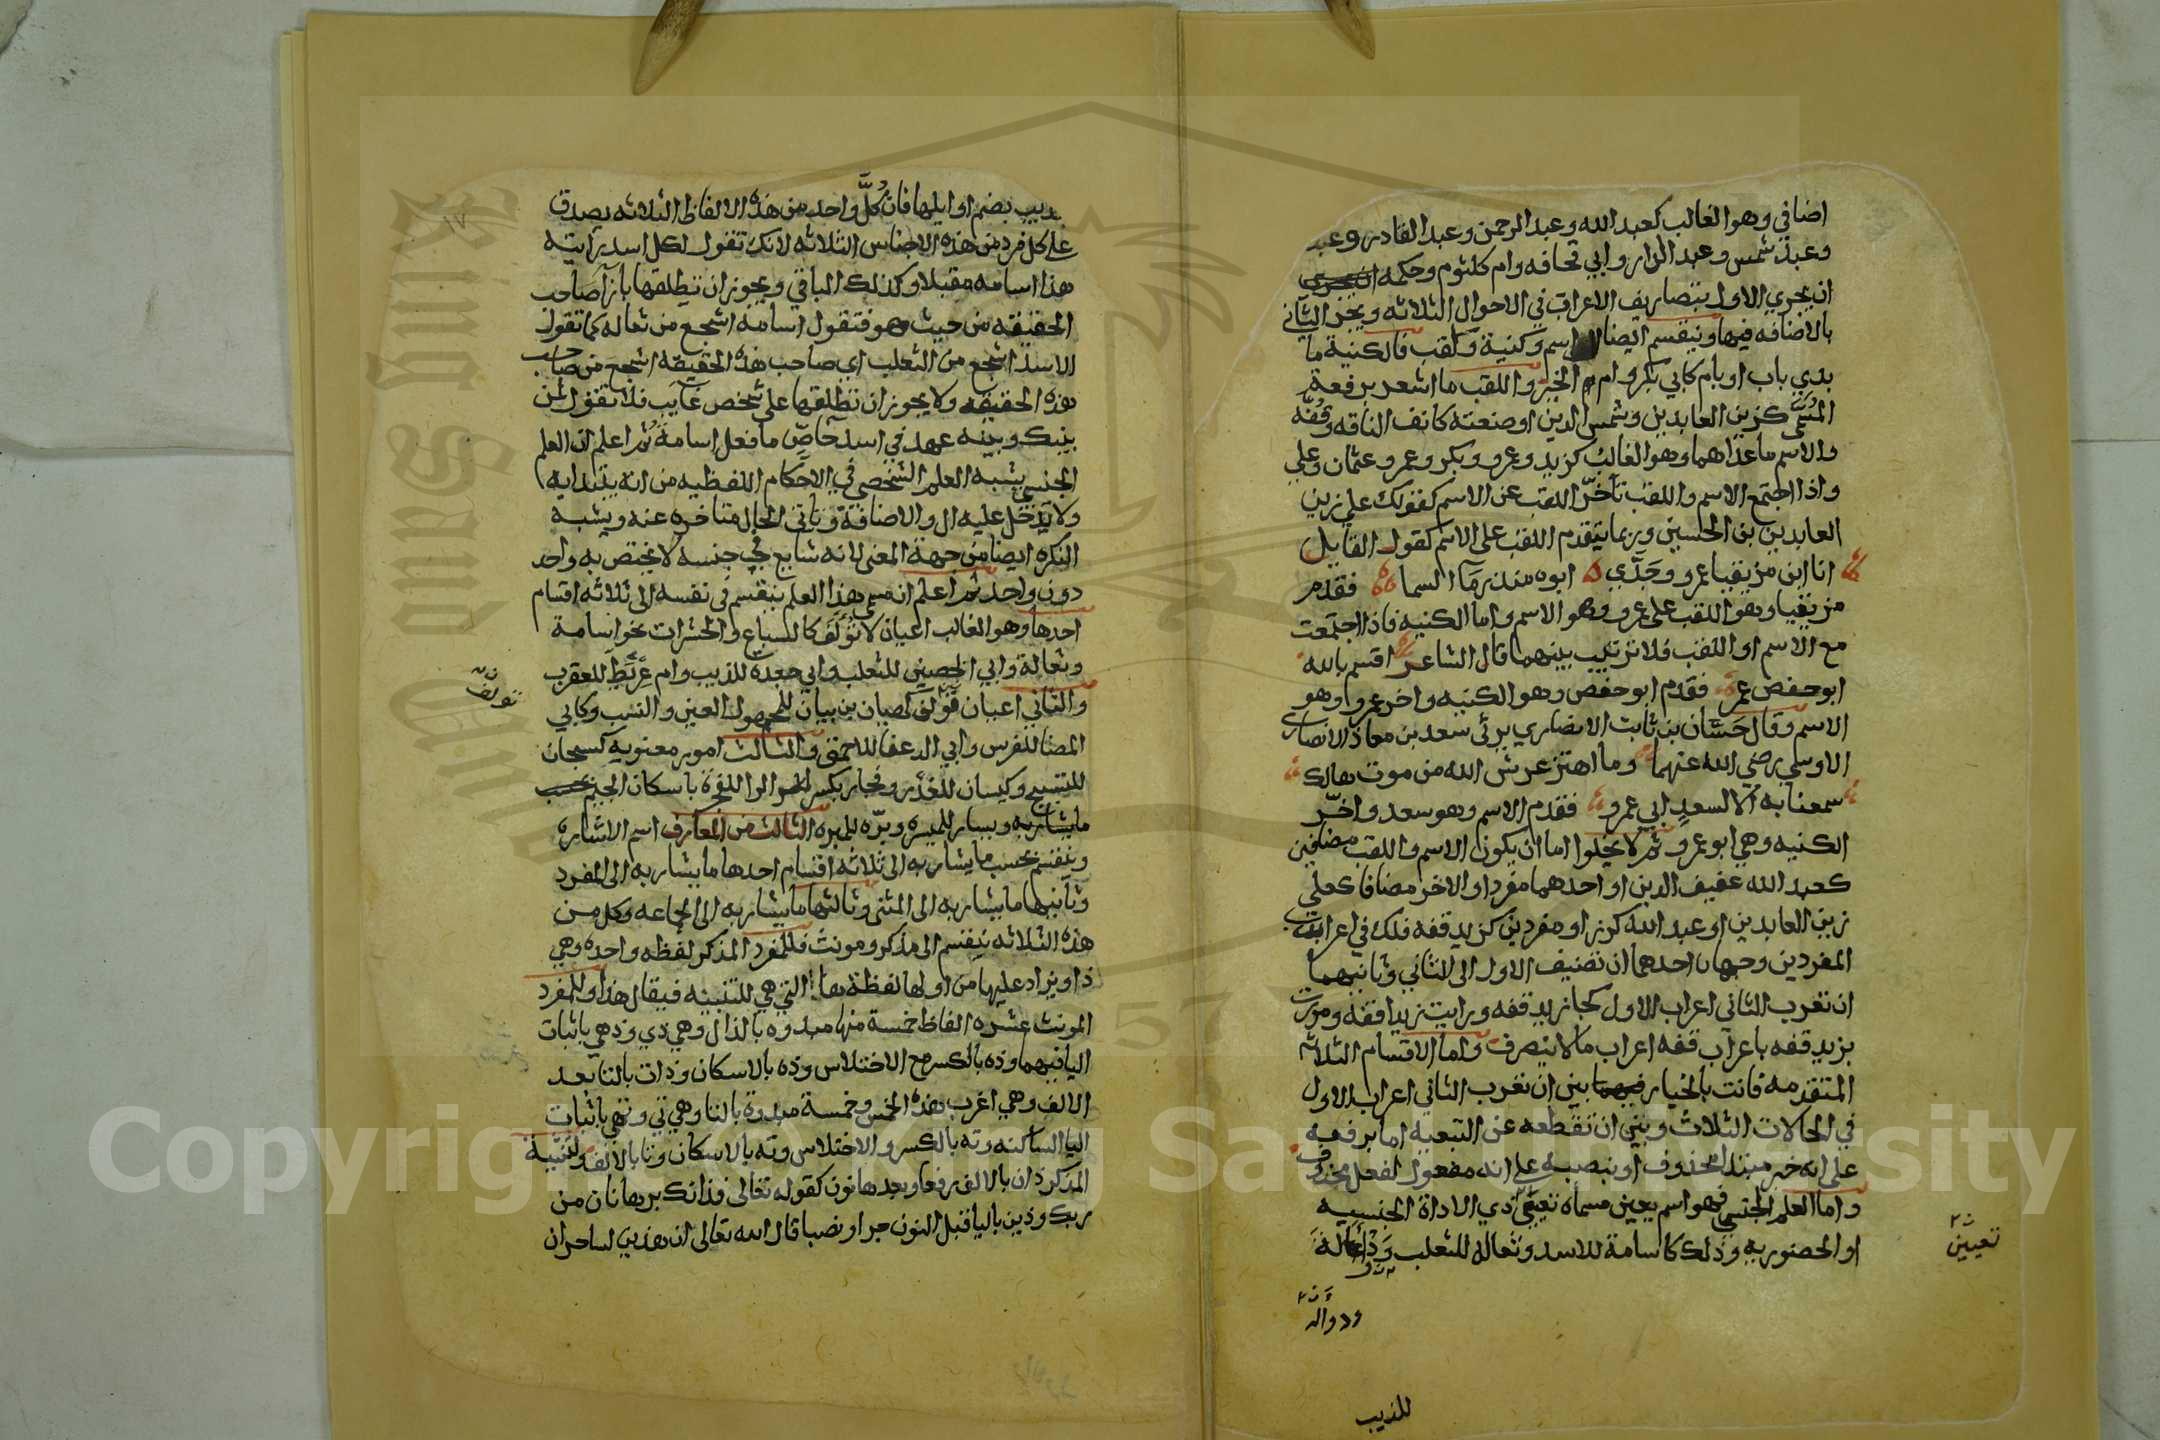 اضافي وهو الغالب كعبد الله وعبد الرحمن وعبد القادر وعبد
وعبد شمس وعبد الدار وابي قحافه وام كلثوم وحكمه
ان يجري الاول بتصاريف الاعراب في الاحوال الثلاثه ويجر الثاني
بالاضافه فيها وينقسم ايضا الى اسم وكنية ولقب فالكنية ما
بدي باب او بام كابي بكر وام الخير واللقب ما اشعر برفعة
المسمى كزين العابدين وشمس الدين او صنعته كانف الناقه وقفه
والاسم ما عداهما وهو الغالب كزيد وعمرو وبكر وعمر وعثمان وعلي
واذا اجتمع الاسم واللقب تأخر اللقب عن الاسم كقولك علي زين
العابدين بن الحسين وربما يتقدم اللقب على الاسم كقول القايل
انا ابن مزيقيا عمرو وجدي ابوه منذر ما السما فقدم
مزيقيا وهو اللقب على عمرو وهو الاسم واما الكنيه فاذا اجتمعت
مع الاسم او اللقب فلا ترتيب بينهما قال الشاعر اقسم بالله
ابو حفص عمر فقدم ابو حفص وهو الكنيه واخر عمر وهو
الاسم وقال حسان بن ثابت الانصاري يرثى سعد بن معاذ الانصاري
الاوسي رضي الله عنهما وما اهتز عرش الله من موت هالك
سمعنا به الا لسعد ابي عمرو فقدم الاسم وهو سعد واخر
الكنيه وهي ابو عمرو ثم لا يخلوا اما ان يكون الاسم واللقب مضافين
كعبد الله عفيف الدين او احدهما مفردا والاخر مضافا كعلي
زين العابدين او عبد الله كرز او مفردين كزيد قفه فلك في اعراب
المفردين وجهان احدهما ان تضيف الاول الى الثاني وثانيهما
ان تعرب الثاني اعراب الاول كجا زيد قفه ورايت زيدا قفه ومررت
بزيد قفه باعراب قفه اعراب ما لا ينصرف واما الاقسام الثلاثه
المتقدمه فانت بالخيار بين ان تعرب الثاني اعراب الاول
في الحالات الثلاث وبين ان تقطعه عن التبعية اما برفعه
على انه خبر مبتدا محذوف او بنصبه على انه مفعول لفعل محذوف
واما العلم الجنسي فهو اسم يعين مسماه تعيين ذي الاداة الجنسيه
او الحضوريه وذلك كاسامة للاسد وثعاله للثعلب وذؤالة
تعيين
وذؤاله
للذيب
بذيب بضم اوايلها فان كل واحد من هذه الالفاظ الثلاثه يصدق
على كل فرد من هذه الاجناس الثلاثه لانك تقول لكل اسد رايته
هذا اسامه مقبلا وكذلك الباقي ويجوز ان تطلقها بازا صاحب
الحقيقه من حيث هو فتقول اسامه اشجع من ثعاله كما تقول
الاسد اشجع من الثعلب اي صاحب هذه الحقيقه اشجع من صاحب
هذه الحقيقه ولا يجوز ان تطلقها على شخص غايب فلا تقول لمن
بينك وبينه عهد في اسد خاص ما فعل اسامة ثم اعلم ان العلم
الجنسي يشبه العلم الشخصي في الاحكام اللفظيه من انه يبتدا به
ولا يدخل عليه ال والاضافة وياتي الحال متاخره عنه ويشبه
النكره ايضا من جهة المعنى لانه شايع في جنسه لا يختص به واحد
دون واحد ثم اعلم ان مسمى هذا العلم ينقسم في نفسه الى ثلاثه اقسام
احدها وهو الغالب اعيان لا تؤلف كالسباع والحشرات نحو اسامة
وثعالة وابي الحصين للثعلب وابي جعدة للذيب وام عريط للعقرب
والثاني اعيان تولف كهيان بن بيان للمجهول العين والنسب وكابي
المضا للفرس وابي الدغفا للاحمق والثالث امور معنويه كسبحان
للتسبيح وكيسان للغدر وفجار بكسر الرا للفجرة باسكان الجيم
ويسار للميسره وبره للمبره الثالث من المعارف اسم الاشاره
وينقسم بحسب ما يشار به الى ثلاثه اقسام احدها ما يشار به الى المفرد
وثانيها ما يشار به الى المثنى وثالثها ما يشار به الى الجماعه وكل من
هذه الثلاثه ينقسم الى مذكر ومونث فللمفرد المذكر لفظه واحده وهي
ذا ويزاد عليها من اولها لفظة ها التي هي للتنبيه فيقال هذا وللمفرد
المونث عشره الفاظ خمسة منها مبدوه بالذال وهي ذي وذهي باثبات
اليا فيهما وذه بالكسر مع الاختلاس وذه بالاسكان وذات بالتا بعد
الالف وهي اغرب هذه الخمس وخمسة مبدوة بالتا وهي تي وتهي باثبات
اليا الساكنه وته بالكسر والاختلاس وته بالاسكان وتا بالالف ولتثنية
المذكر ذان بالالف رفعا وبعدها نون كقوله تعالى فذانك برهانان من
ربك وذين باليا قبل النون جرا ونصبا قال الله تعالى ان هذين لساحران
تولف
١٧
King Saud University
1957
Copyright © King Saud University